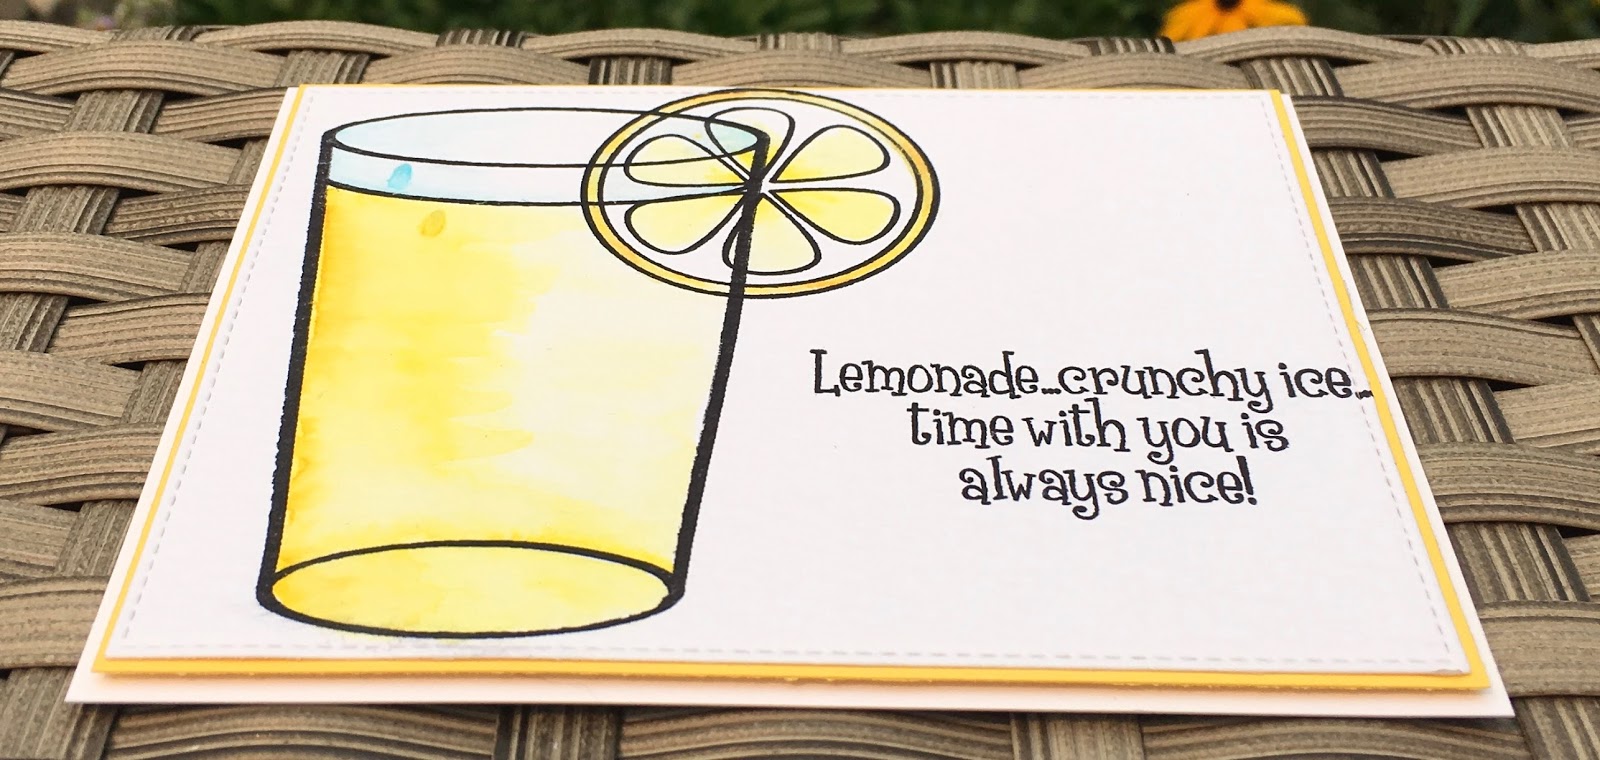 Lemonade...crunchy ice...
time with you is
always nice!